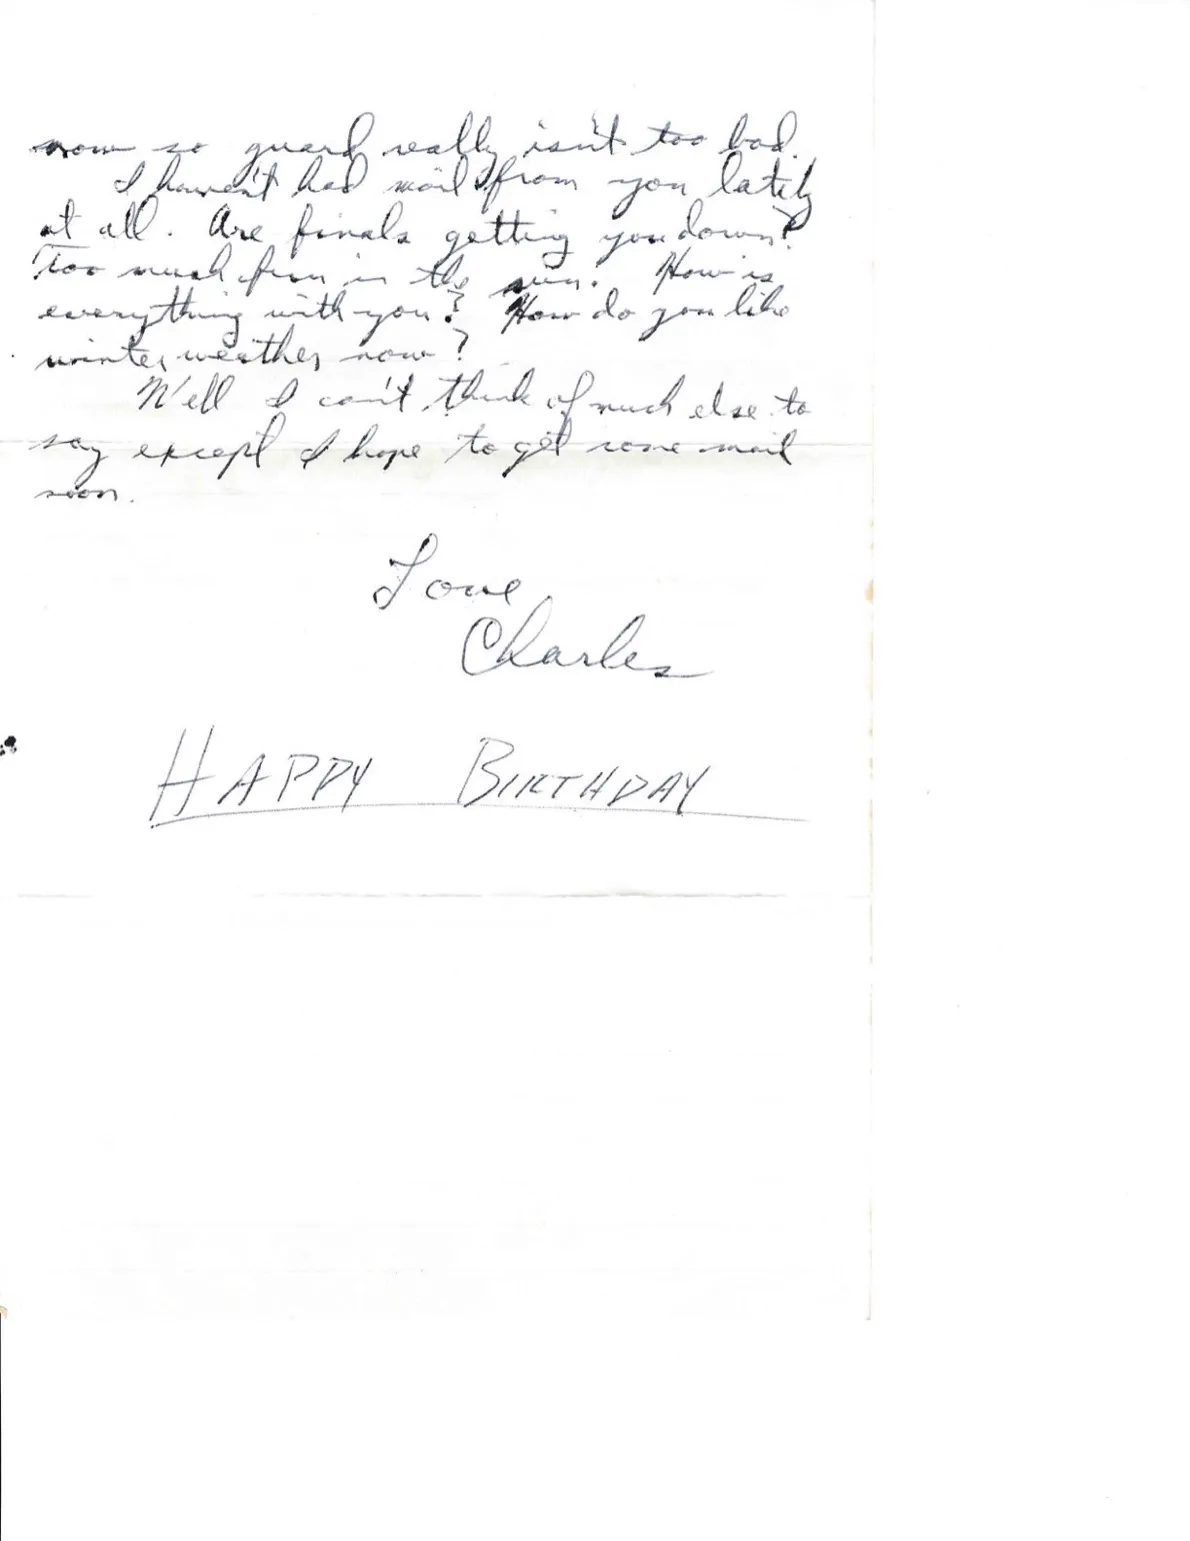 now so guard really isn't too bad.
I haven't had mail from you lately
at all. Are finals getting you down?
Too much fun in the sun. How is
everything with you? How do you like
winter weather now?
Well I can't think of much else to
say except I hope to get some mail
soon.
Love
Charles
HAPPY BIRTHDAY